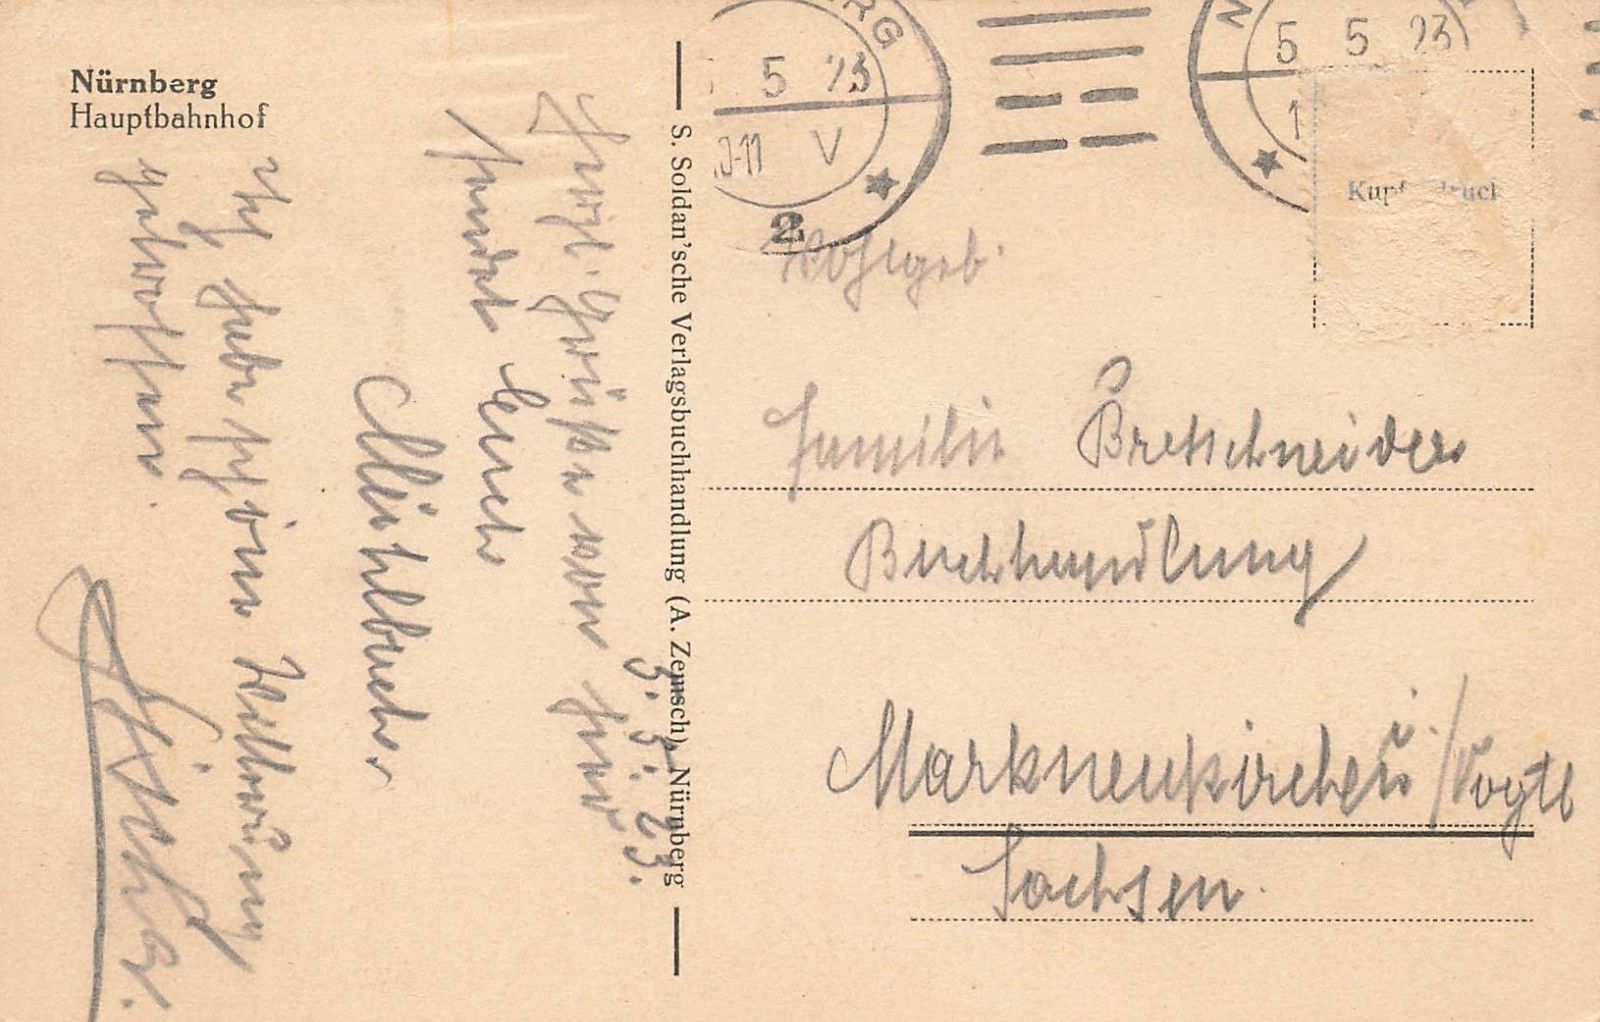 Nürnberg
Hauptbahnhof
3. 5. 23.
Herzl. Grüße von hier
sendet Euch
Mühlbauer
Ich habe schöne
getroffen.
S. Soldan'sche Verlagsbuchhandlung (A. Zemsch), Nürnberg
5 23
V
2
N
5 5 23
Kupferdruck
Wohlgeb.
Familie Bretschneider
Buchhandlung
Markneukirchen i./Vogtl
Sachsen.